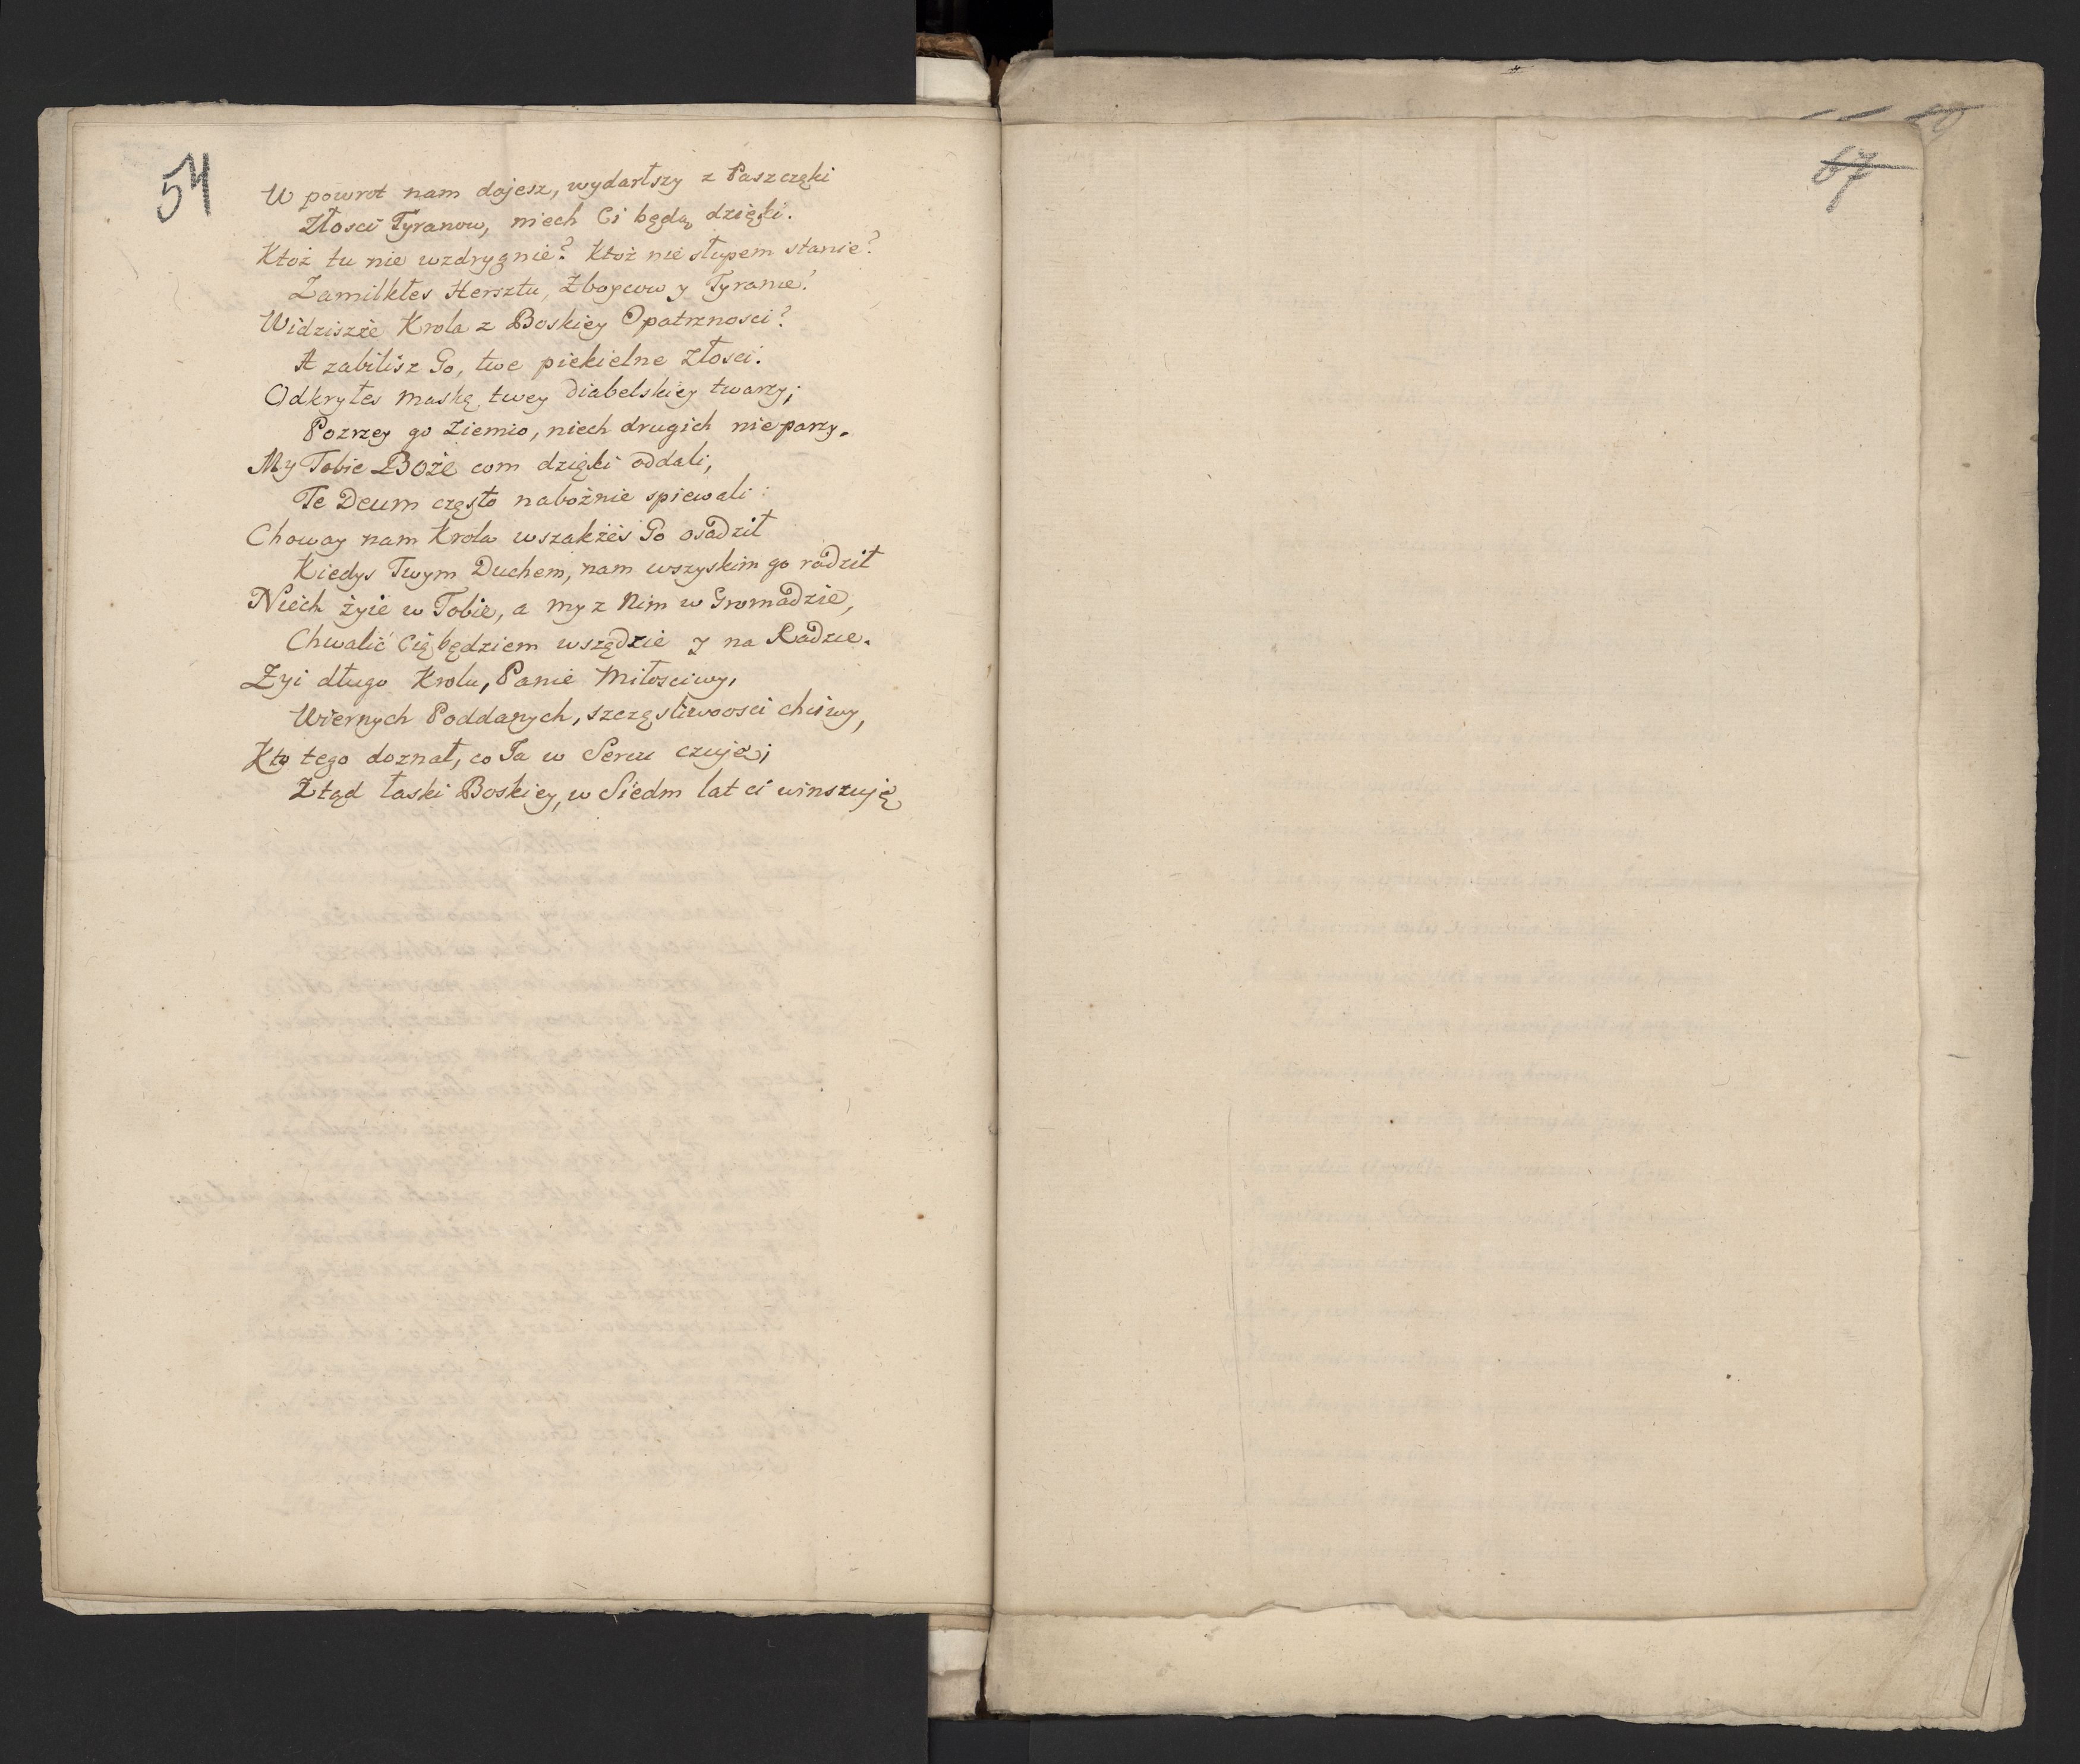 54
W powrot nam dajesz, wydartszy z Paszczęki
Złosci Tyranow, niech Ci będą dzięki.
Ktoż tu nie wzdrygnie? Ktoż nie słupem stanie?
Zamilkłes Hersztu, Zboycow y Tyranie!
Widziszże Krola z Boskiey Opatrznosci?
A zabilisz Go, twe piekielne Złosci.
Odkryłes maskę twey Diabelskiey twarzy;
Pozrzey go Ziemio, niech drugich nie parzy.
My Tobie Boże com dzięki oddali,
Te Deum często nabożnie spiewali:
Choway nam Krola wszakżeś Go osadził
Kiedys Twym Duchem, nam wszyskim go radził
Niech żyie w Tobie, a my z Nim w Gromadzie,
Chwalić Cię będziem wszędzie y na Radzie.
Zyi długo Krolu, Panie Miłosciwy,
Wiernych Poddanych, szczęsliwoosci chciwy,
Kto tego doznał, co Ja w Sercu czuję;
Ztąd łaski Boskiey, w Siedm lat ci winszuję
67